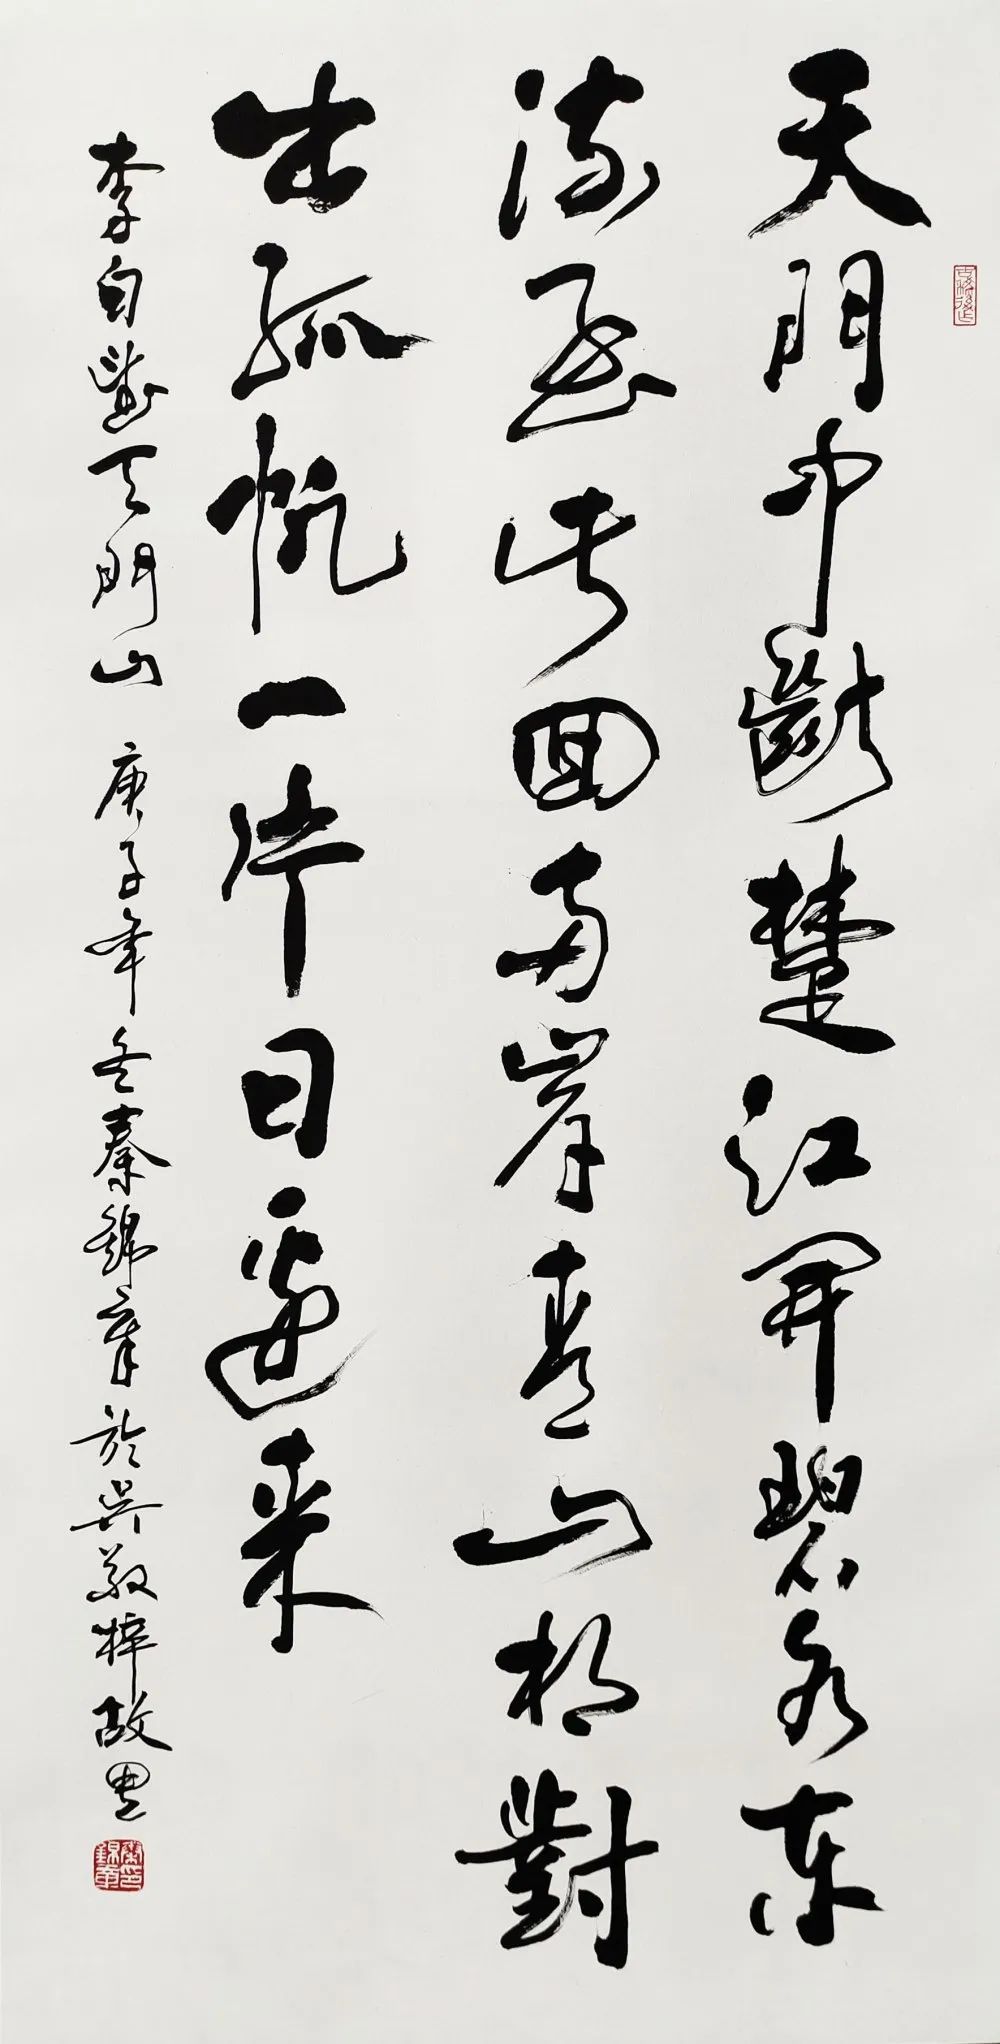 天門中斷楚江開碧水東
流至此回兩岸青山相對
出孤帆一片日邊来
李白望天門山 庚子年冬秦錦章於吳敬梓故里